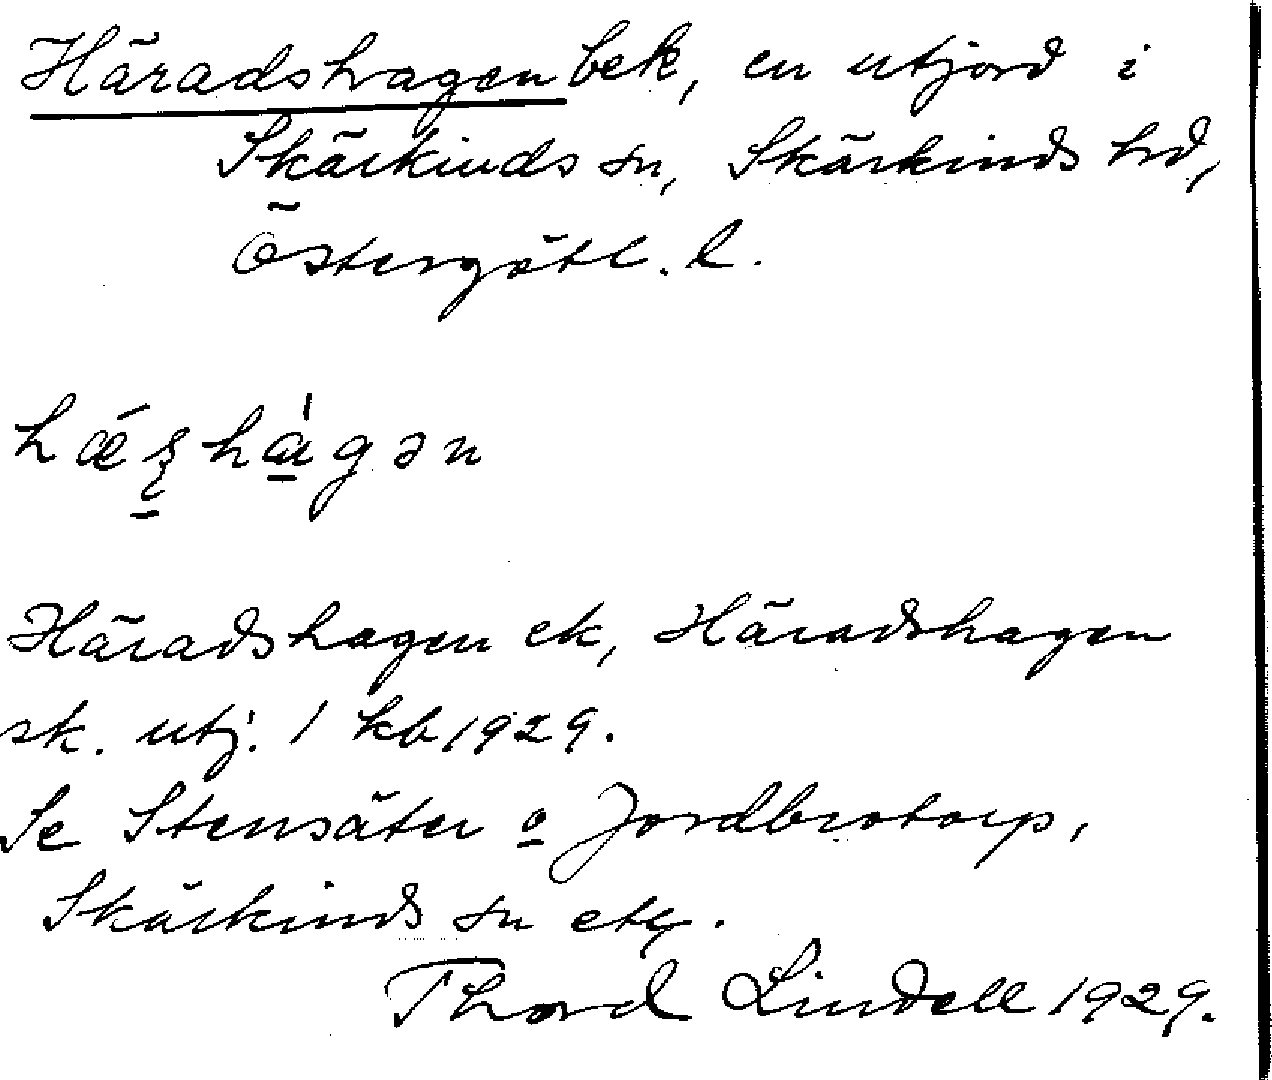 Häradshagen bek, en utjord i
Skärkinds sn, Skärkinds hd,
Östergötl. l.
hágən
Häradshagen ek, Häradshagen
sk. utj. 1 kb 1929.
Se Stensäter o Jordbrotorp,
Skärkinds sn etc.
Thord Lindell 1929.